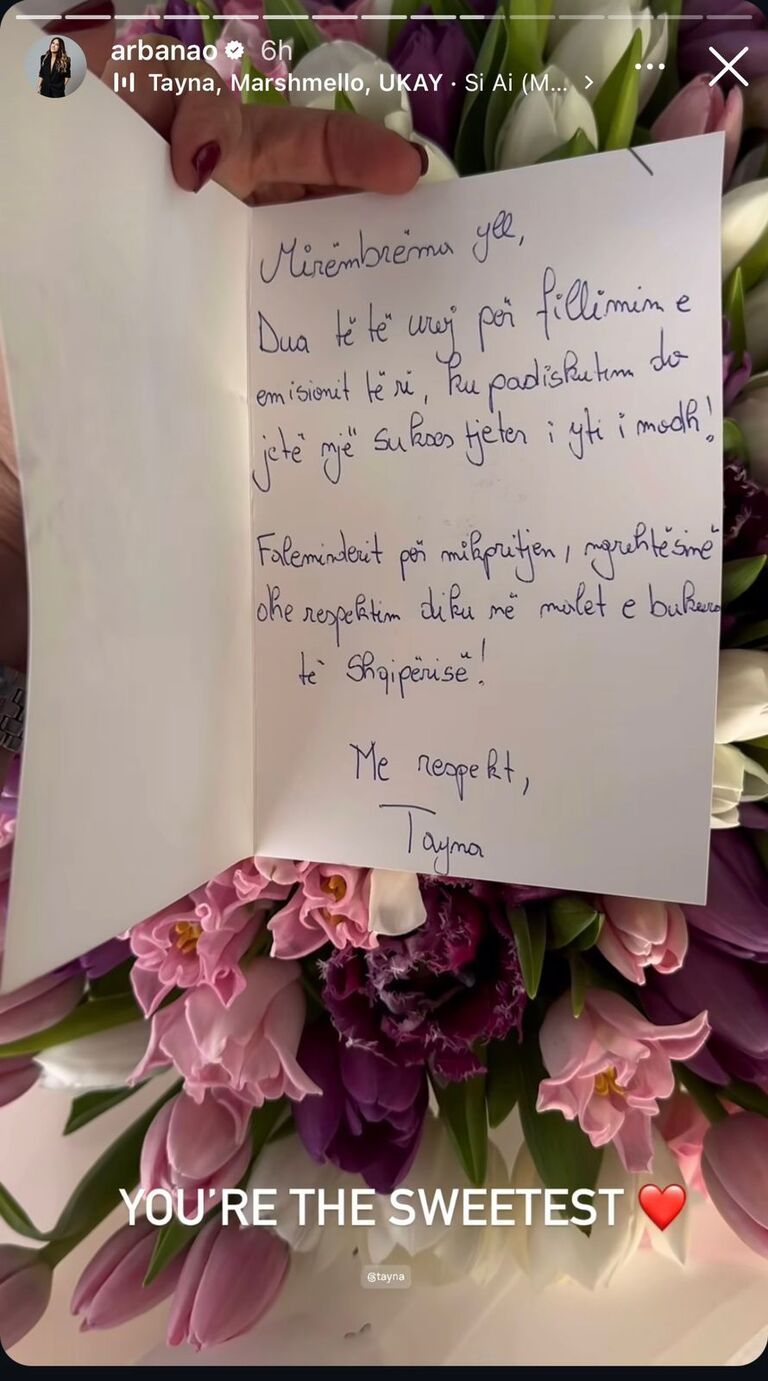 arbanao 6h
Tayna, Marshmello, UKAY · Si Ai (M... >
Mirëmbrëma yll,
Dua të të uroj për fillimin e
emisionit të ri, ku padiskutim do
jetë një sukses tjetër i yti i madh!
Faleminderit për mikpritjen, ngrohtësinë
dhe respektim diku në malet e bukura
të Shqipërisë!
Me respekt,
Tayna
YOU'RE THE SWEETEST ❤️
@tayna